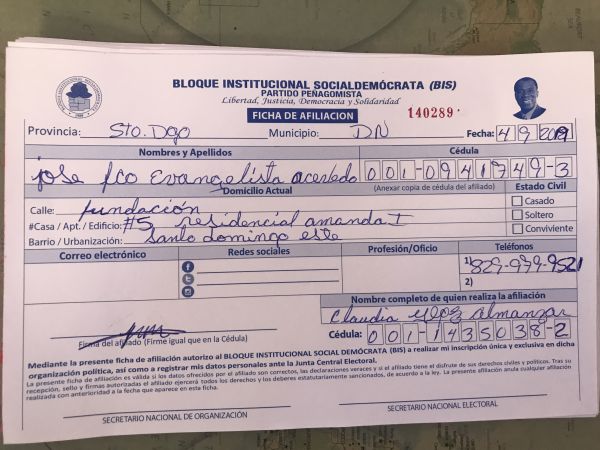 BLOQUE INSTITUCIONAL SOCIALDEMÓCRATA (BIS)
PARTIDO PEÑAGOMISTA
Libertad, Justicia, Democracia y Solidaridad
FICHA DE AFILIACION
140289
Provincia: Sto. Dgo Municipio: DN Fecha: 4/9/2019
Nombres y Apellidos Cédula
jose fco Evangelista acevedo 001-0941749-3
Domicilio Actual (Anexar copia de cédula del afiliado) Estado Civil
Calle: fundación Casado
#Casa / Apt. / Edificio: #5 residencial amanda I Soltero
Barrio / Urbanización: Santo domingo este Conviviente
Correo electrónico Redes sociales Profesión/Oficio Teléfonos
1) 829-979-9521
2)
Nombre completo de quien realiza la afiliación
Claudia Almanzar
Firma del afiliado (Firme igual que en la Cédula) Cédula: 001-1435038-2
Mediante la presente ficha de afiliación autorizo al BLOQUE INSTITUCIONAL SOCIAL DEMÓCRATA (BIS) a realizar mi inscripción única y exclusiva en dicha
organización política, así como a registrar mis datos personales ante la Junta Central Electoral.
La presente ficha de afiliación es válida si los datos ofrecidos por el afiliado son correctos, las declaraciones veraces y si el afiliado tiene el disfrute de sus derechos civiles y políticos. Tras su
recepción, sello y firmas autorizadas el afiliado ejercerá todos los derechos y los deberes estatutariamente sancionados, de acuerdo a la ley. La presente afiliación anula cualquier afiliación
realizada con anterioridad a la fecha que aparece en esta ficha.
SECRETARIO NACIONAL DE ORGANIZACIÓN SECRETARIO NACIONAL ELECTORAL